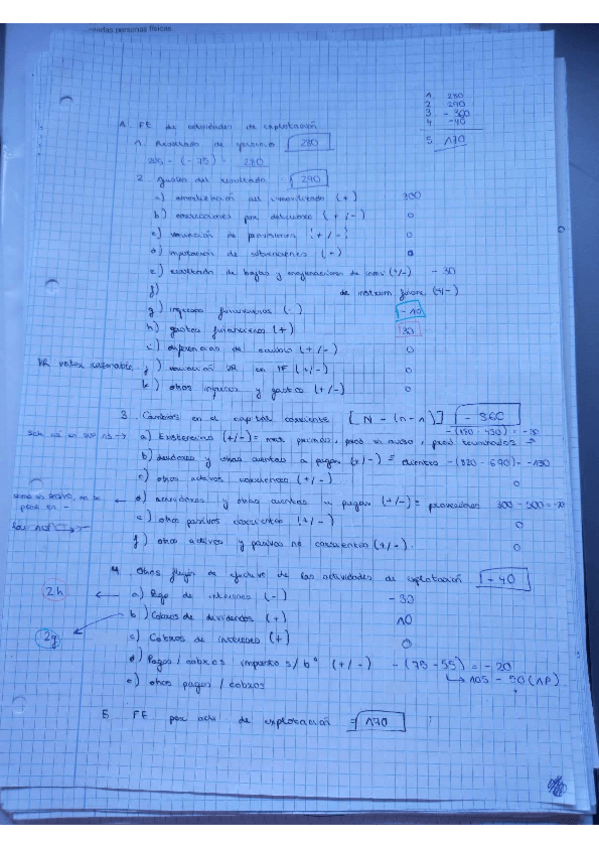 personas físicas
1. 280
2. 290
3. - 360
4. - 40
5. 170
A. FE de actividades de explotación
1. Resultado de ejercicio 280
205 - (- 75) = 280
2. Ajustes del resultado 290
a) amortización del inmovilizado (+) 300
b) correcciones por deterioro (+/-) 0
c) variación de provisiones (+/-) 0
d) imputación de subvenciones (-) 0
e) resultado de bajas y enajenaciones de inmov (+/-) - 30
f) de instrum financ (+/-)
g) ingresos financieros (-) - 10
h) gastos financieros (+) 30
i) diferencias de cambio (+/-) 0
VR valor razonable j) variación VR en IF (+/-) 0
k) otros ingresos y gastos (+/-) 0
3. Cambios en el capital corriente [N - (n-1)] - 360
- (480 - 450) = - 30
a) Existencias (+/-) = mat primas, prod en curso, prod terminados
b) deudores y otras cuentas a pagar (+/-) = clientes - (820 - 690) = - 130
c) otros activos corrientes (+/-) 0
d) acreedores y otras cuentas a pagar (+/-) = proveedores 300 - 500 =
e) otros pasivos corrientes (+/-) 0
f) otros activos y pasivos no corrientes (+/-). 0
4. Otros flujos de efectivo de las actividades de explotación - 40
2h a) Pago de intereses (-) - 30
b) Cobros de dividendos (+) 10
2g c) Cobros de intereses (+) 0
d) Pagos / cobros impuesto s/ bº (+/-) - (75 - 55) = - 20
e) otros pagos / cobros 105 - 50 (HP)
5. FE por act de explotación = 170